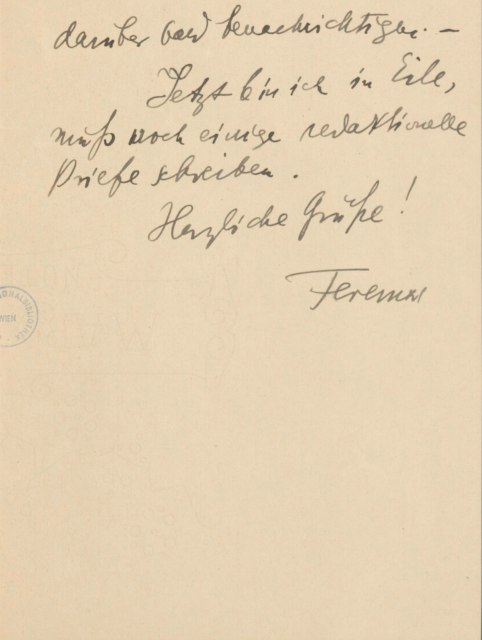 darüber bald benachrichtigen. —
Jetzt bin ich in Eile,
muß noch einige redaktionelle
Briefe schreiben.
Herzliche Grüße!
Ferenczi
WIEN